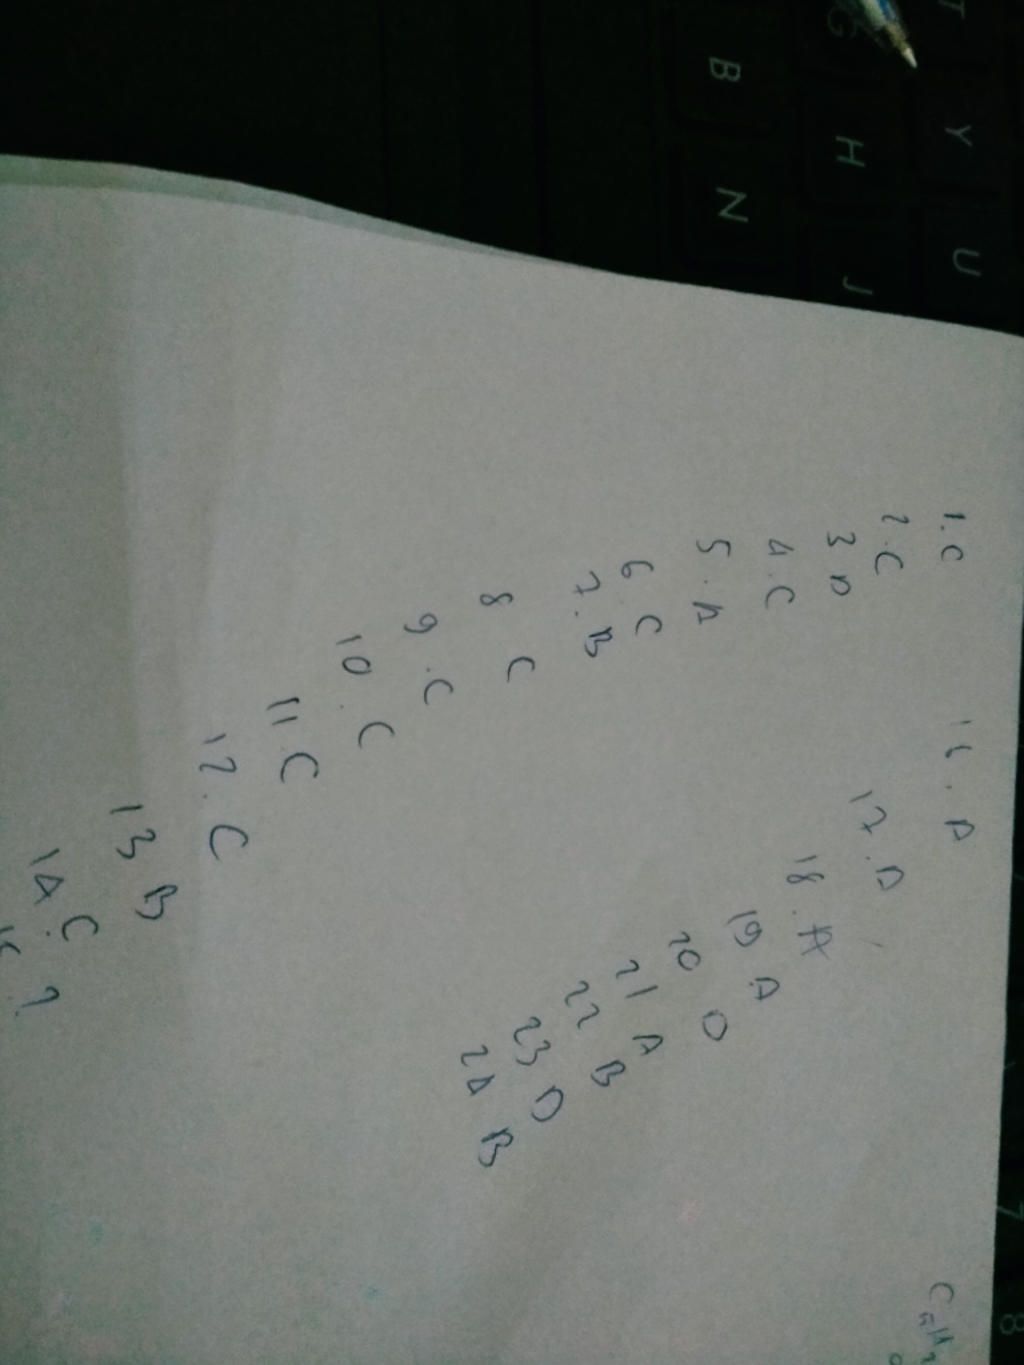 1. C
2. C
3 D
4. C
5. A
6. C
7. B
8 C
9. C
10. C
11 C
12. C
13 B
14 C.
15 ?
16. A
17. A
18. A
19 A
20 D
21 A
22 B
23 D
24 B
T
Y
U
G
H
J
B
N
7
8